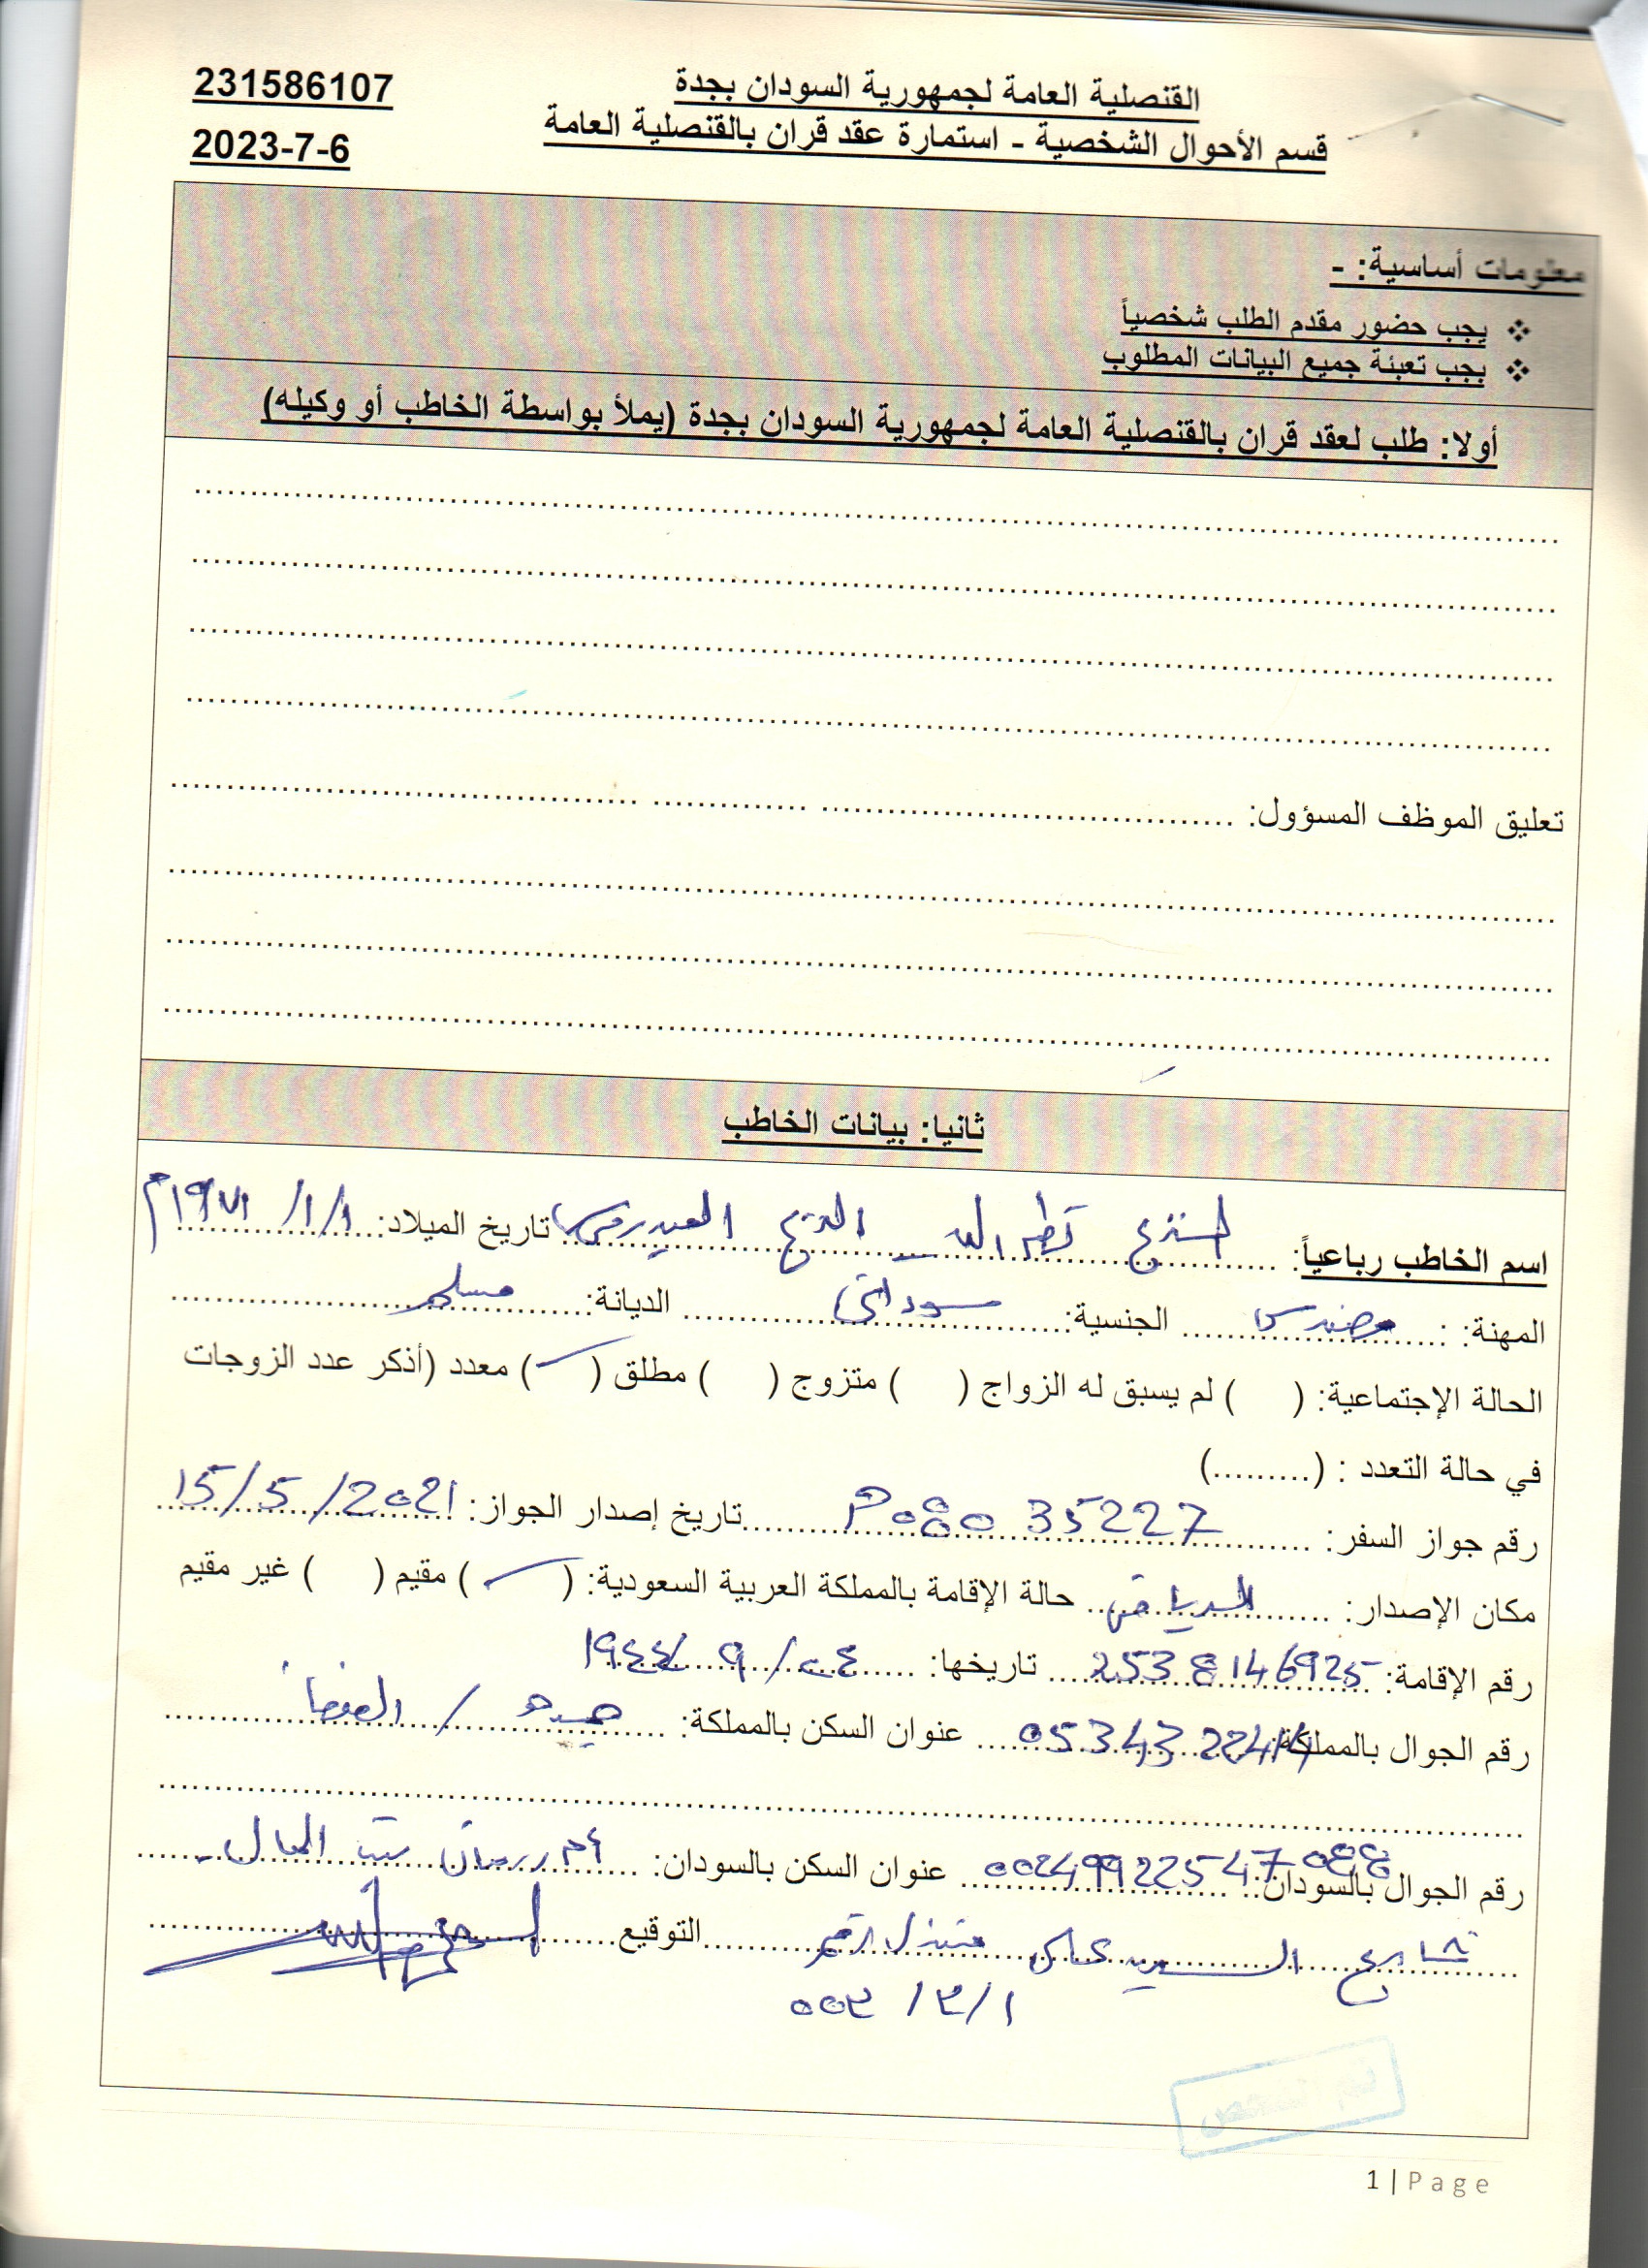 القنصلية العامة لجمهورية السودان بجدة
231586107
قسم الأحوال الشخصية - استمارة عقد قران بالقنصلية العامة
2023-7-6
معلومات أساسية: -
❖ يجب حضور مقدم الطلب شخصياً
❖ يجب تعبئة جميع البيانات المطلوب
أولا: طلب لعقد قران بالقنصلية العامة لجمهورية السودان بجدة (يملأ بواسطة الخاطب أو وكيله)
تعليق الموظف المسؤول:
ثانيا: بيانات الخاطب
اسم الخاطب رباعياً: تاريخ الميلاد: ١/١/ ١٩٧١م
المهنة: : مهندس الجنسية: سوداني الديانة: مسلم
الحالة الإجتماعية: ( ) لم يسبق له الزواج ( ) متزوج ( ) مطلق ( ) معدد (أذكر عدد الزوجات
في حالة التعدد : (.........)
رقم جواز السفر: P080 35227 تاريخ إصدار الجواز: 15/5/2021
مكان الإصدار: الرياض حالة الإقامة بالمملكة العربية السعودية: ( ) مقيم ( ) غير مقيم
رقم الإقامة: 2538146925 تاريخها:
رقم الجوال بالمملكة: عنوان السكن بالمملكة: جده / الصفا
رقم الجوال بالسودان: 00249922547088 عنوان السكن بالسودان: أم درمان بيت المال -
شارع السيد علي منزل رقم التوقيع
1 | Page